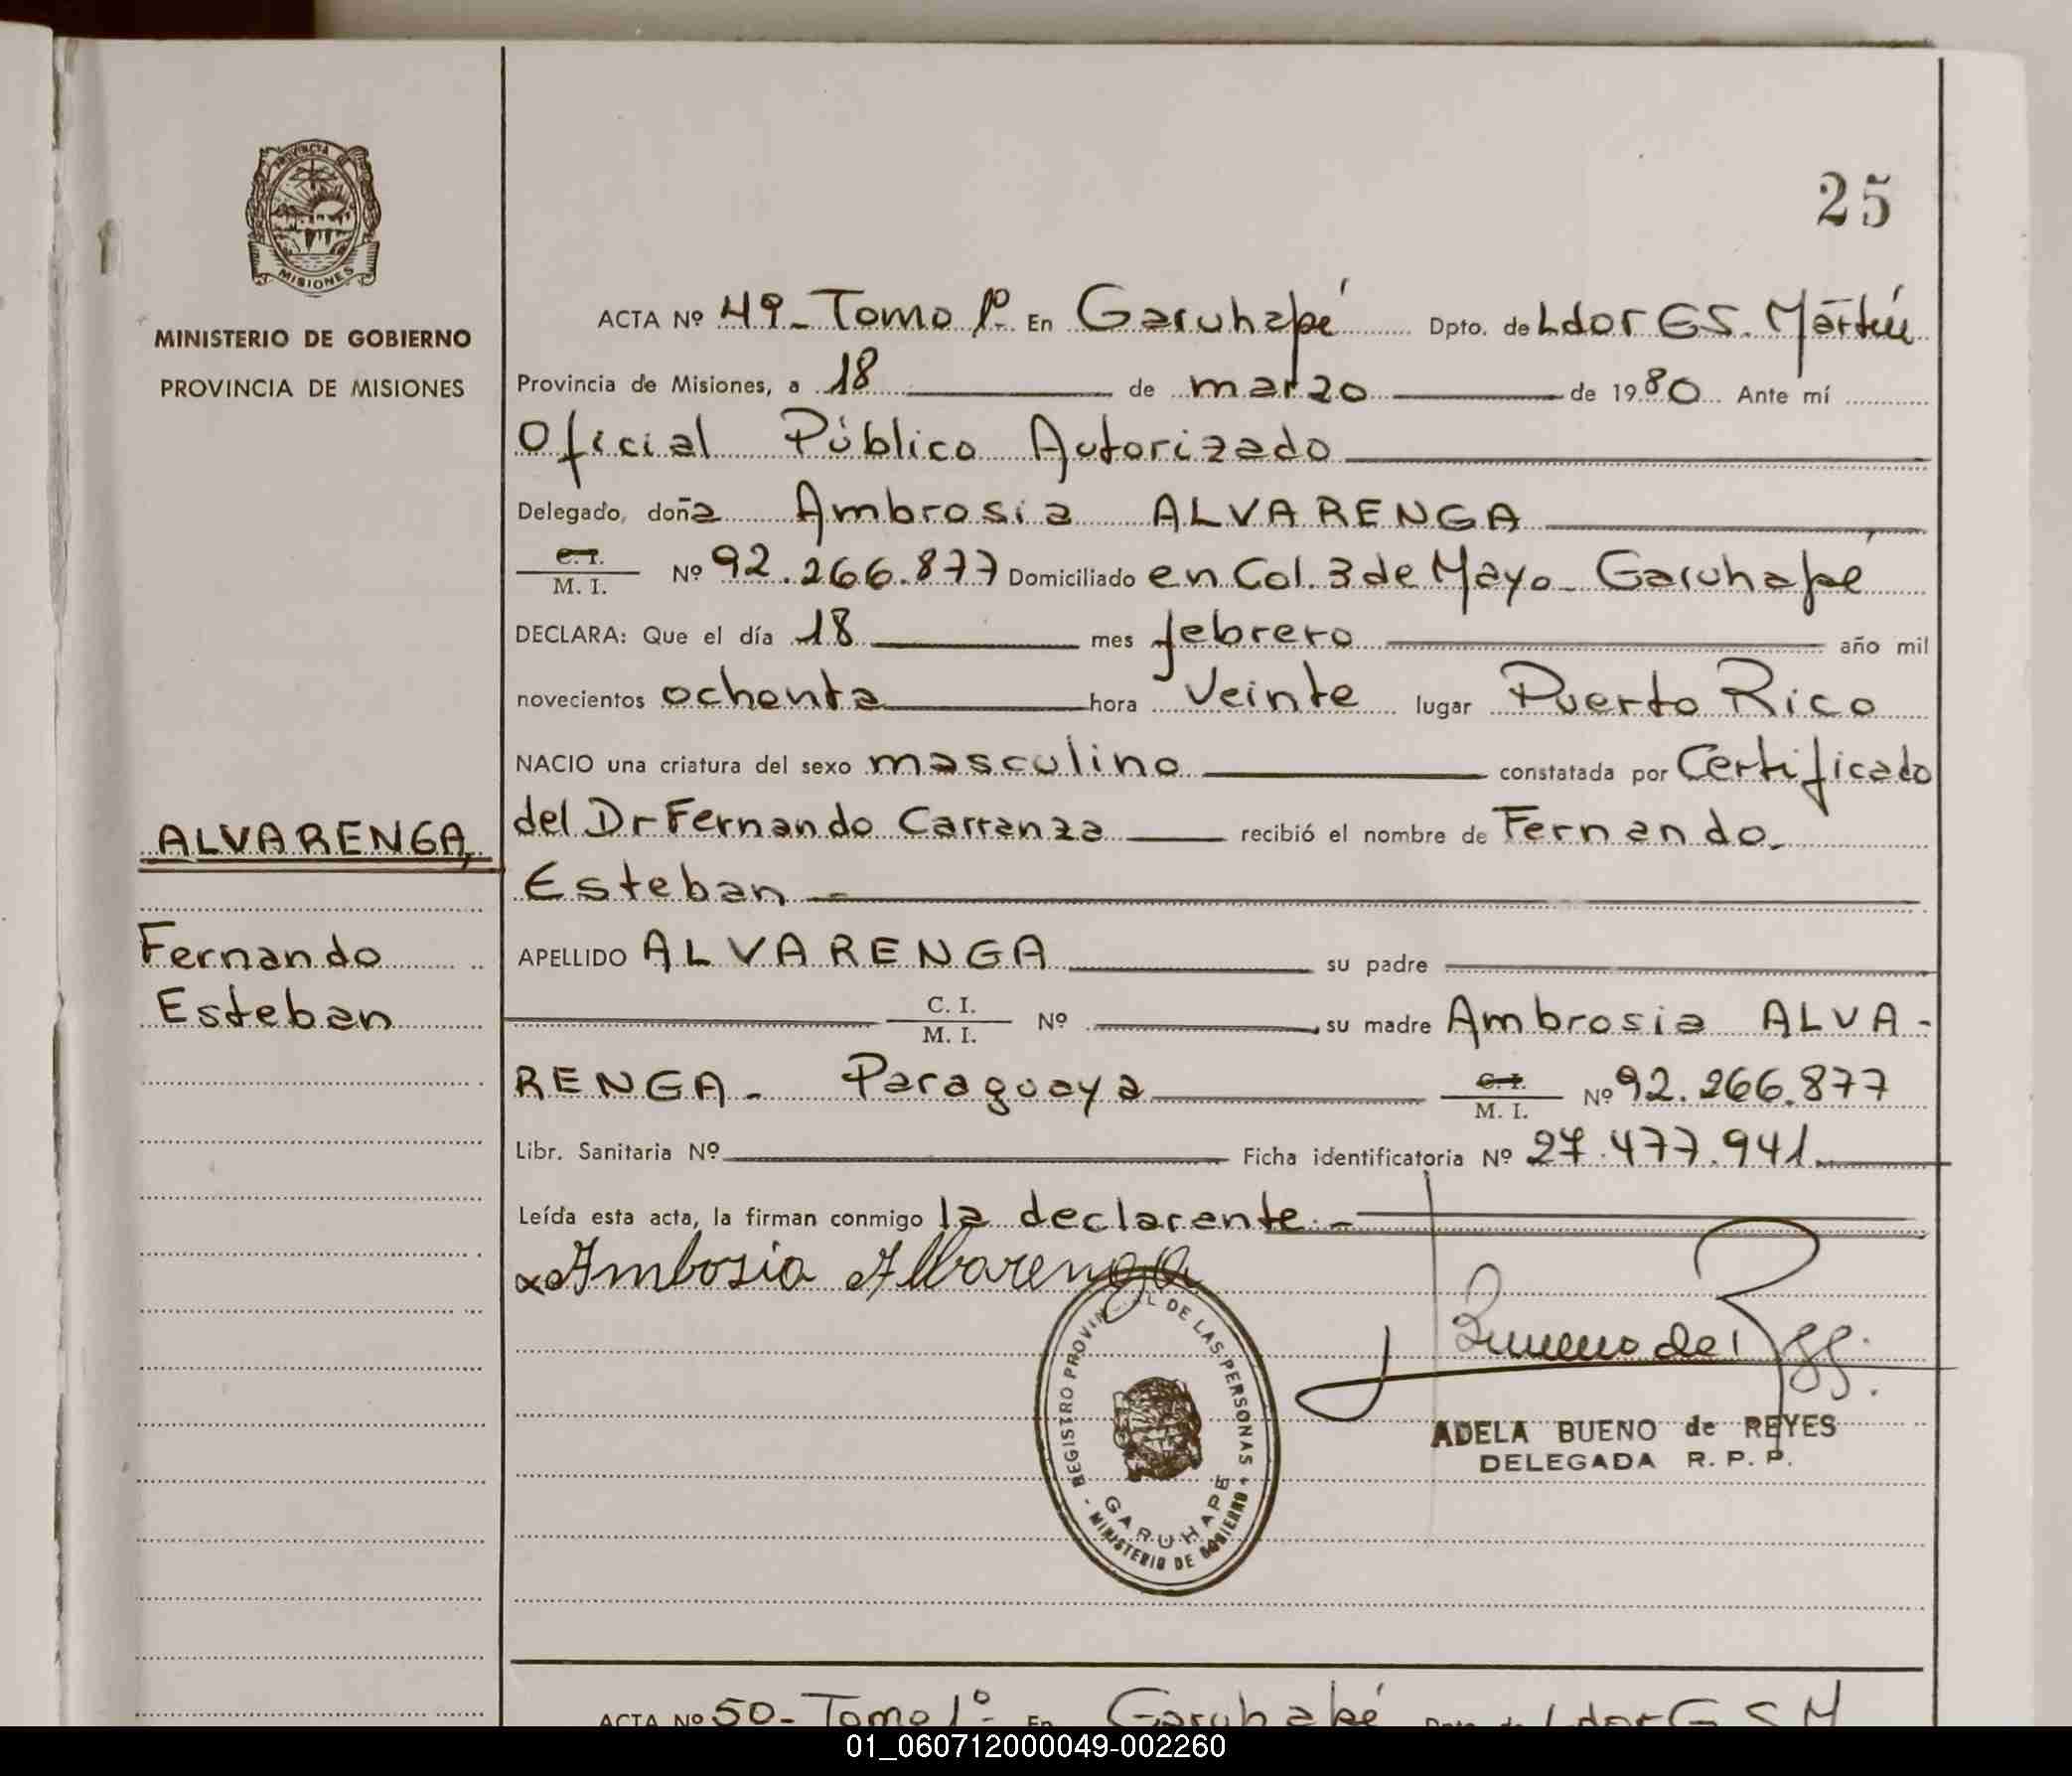 25
PROVINCIA
MISIONES
MINISTERIO DE GOBIERNO
PROVINCIA DE MISIONES
ACTA Nº 49-Tomo 1º- En Garuhapé Dpto. de Ldor GS. Martín
Provincia de Misiones, a 18 de marzo de 1980 Ante mí
Oficial Público Autorizado
Delegado, doña Ambrosia ALVARENGA
C. I.
M. I. Nº 92.266.877 Domiciliado en Col. 3 de Mayo- Garuhape
DECLARA: Que el día 18 mes febrero año mil
novecientos ochenta hora Veinte lugar Puerto Rico
NACIO una criatura del sexo masculino constatada por Certificado
del Dr Fernando Carranza recibió el nombre de Fernando
Esteban
ALVARENGA,
Fernando
Esteban
APELLIDO ALVARENGA su padre
C. I.
M. I. Nº su madre Ambrosia ALVA-
RENGA- Paraguaya C. I.
M. I. Nº 92.266.877
Libr. Sanitaria Nº Ficha identificatoria Nº 27.477.941
Leída esta acta, la firman conmigo la declarante.-
Ambosia Albarenga
REGISTRO PROVINCIAL DE LAS PERSONAS
GARUHAPE
MINISTERIO DE GOBIERNO
ADELA BUENO de REYES
DELEGADA R. P. P.
ACTA Nº 50- Tomo 1º- En Garuhapé Dpto. de Ldor G S M
01_060712000049-002260